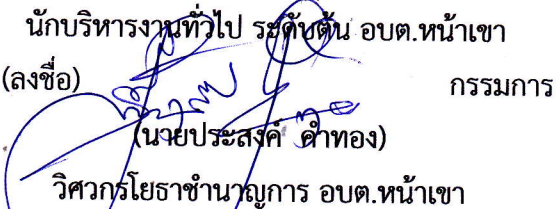 นักบริหารงานทั่วไป ระดับต้น อบต.หน้าเขา
(ลงชื่อ) กรรมการ
(นายประสงค์ คำทอง)
วิศวกรโยธาชำนาญการ อบต.หน้าเขา